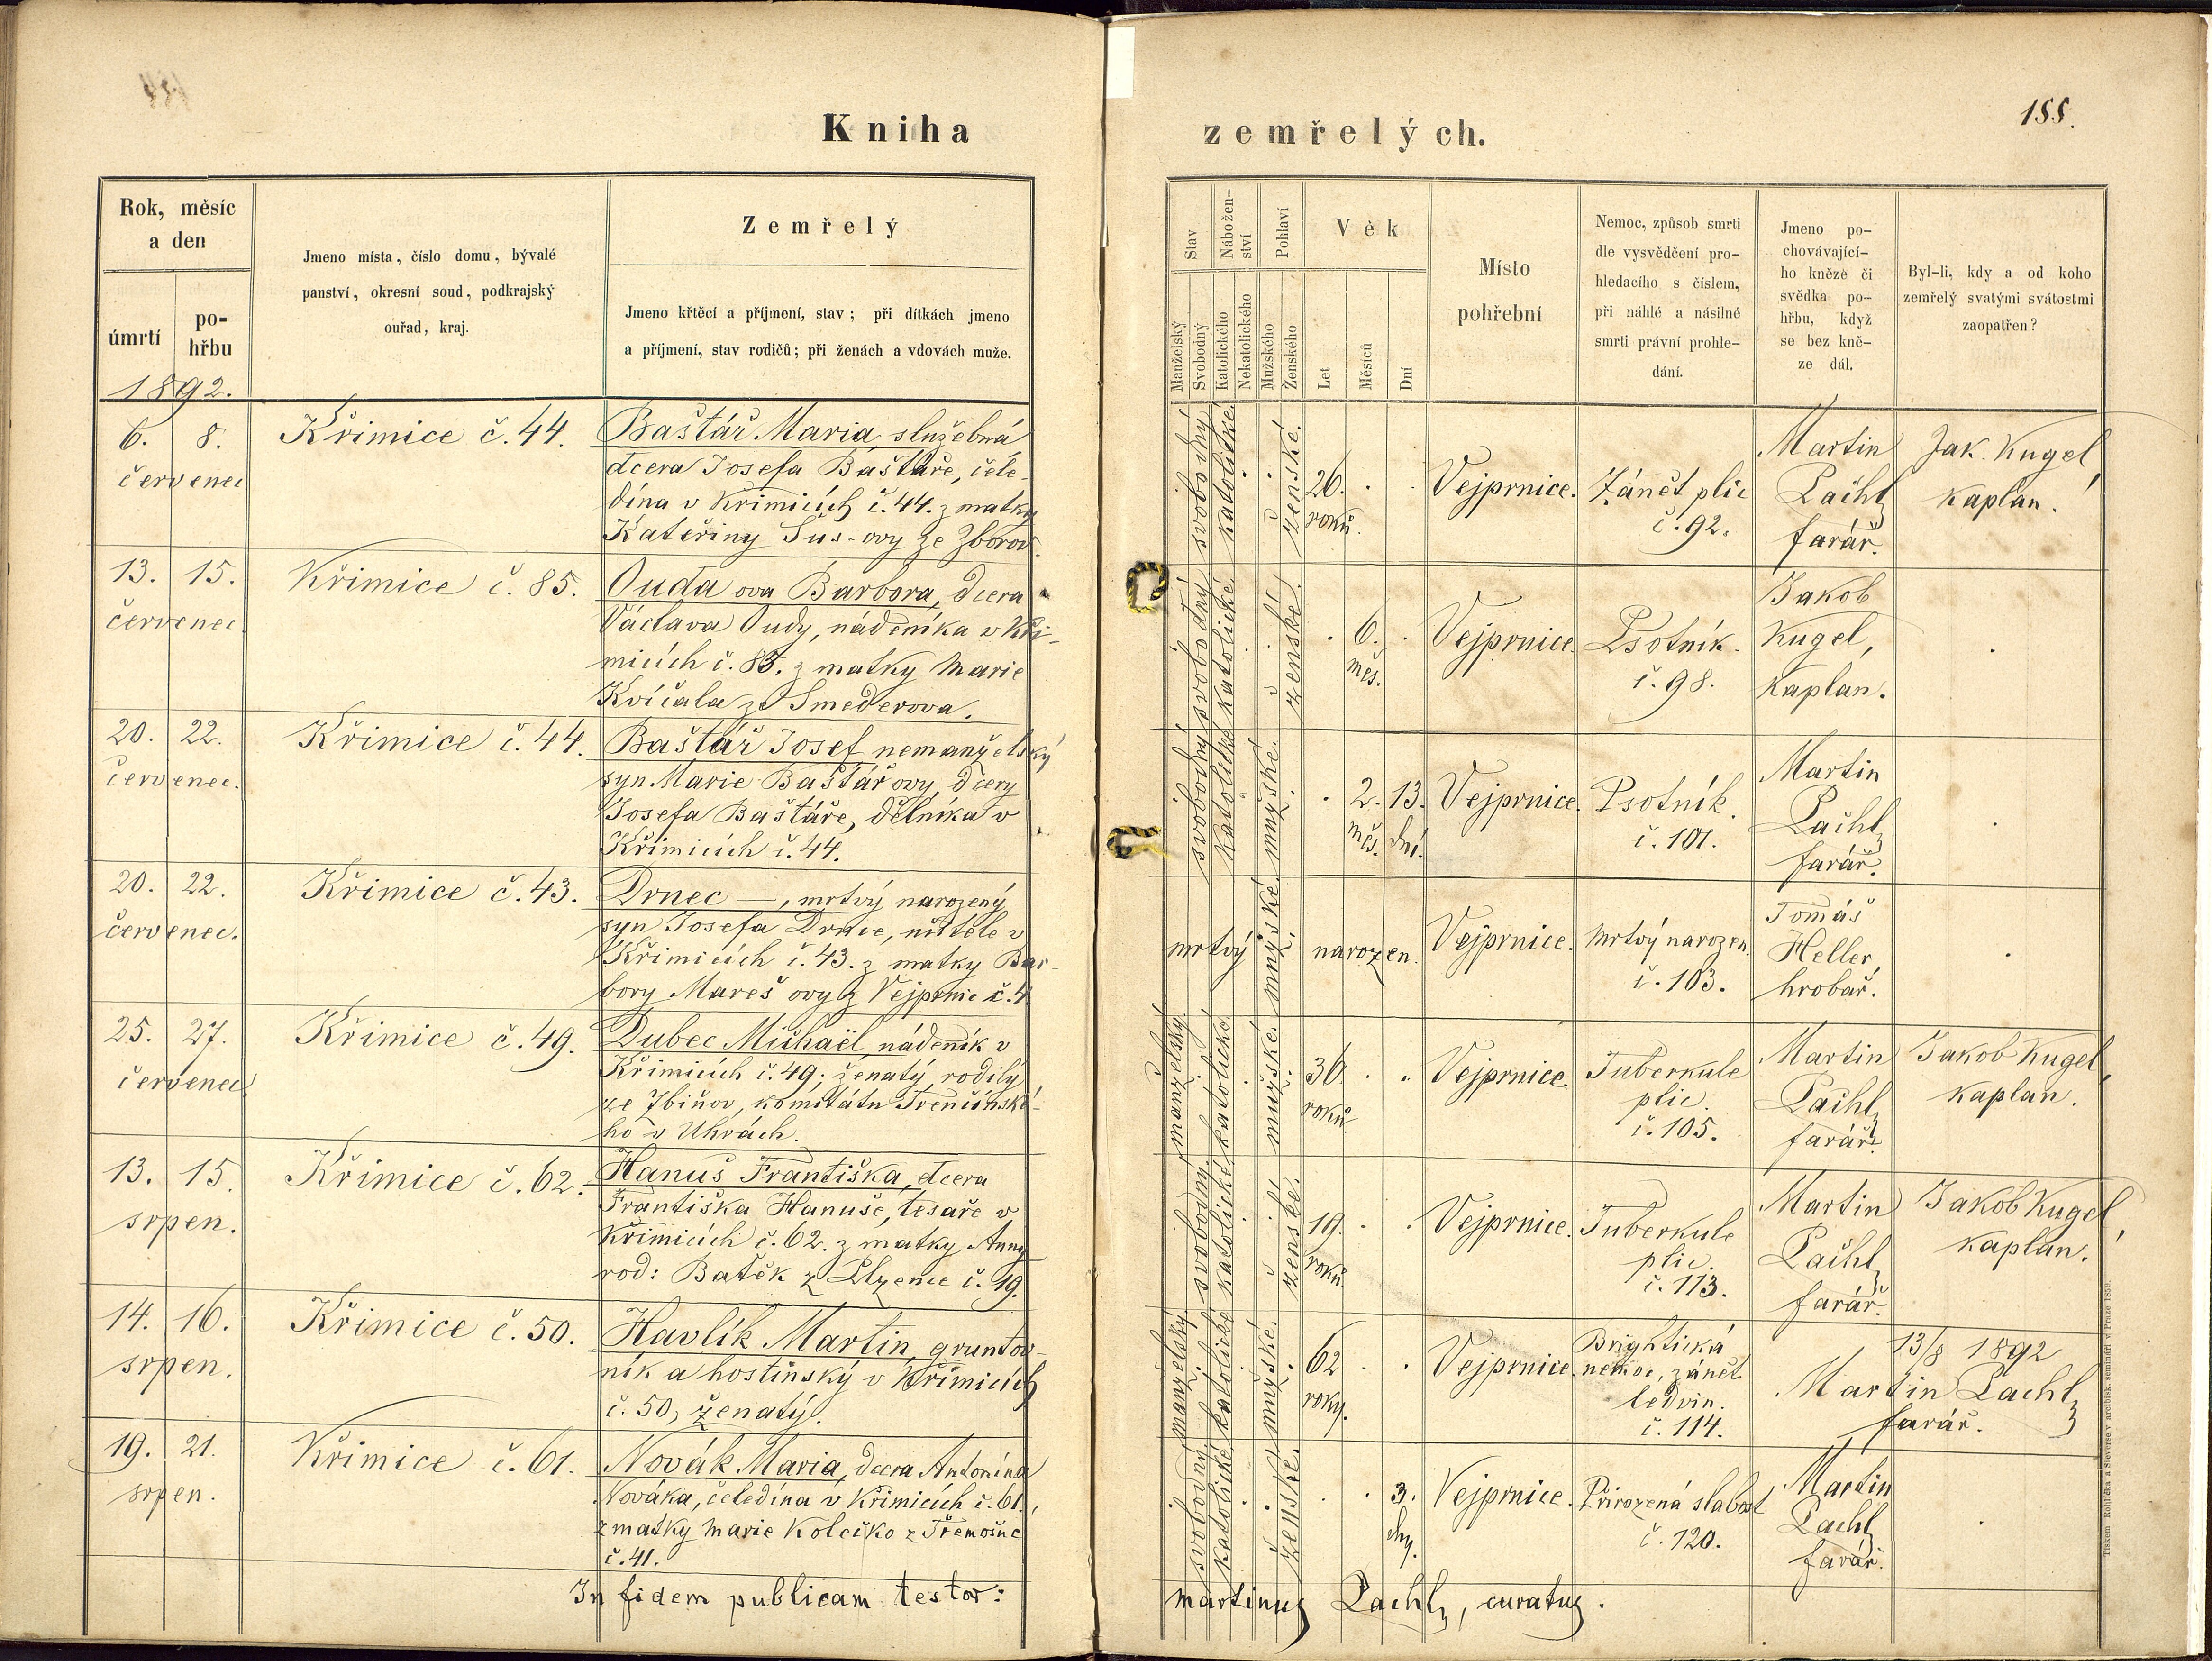 Kniha zemřelých.
155.
Rok, měsíc
a den
úmrtí
po-
hřbu
Jmeno místa, číslo domu, bývalé
panství, okresní soud, podkrajský
ouřad, kraj.
Zemřelý
Jmeno křtěcí a příjmení, stav; při dítkách jmeno
a příjmení, stav rodičů; při ženách a vdovách muže.
Stav
Manželský
Svobodný
Nábožen-
ství
Katolického
Nekatolického
Pohlaví
Mužského
Ženského
Věk
Let
Měsíců
Dní
Místo
pohřební
Nemoc, způsob smrti
dle vysvědčení pro-
hledacího s číslem,
při náhlé a násilné
smrti právní prohle-
dání.
Jmeno po-
chovávající-
ho kněze či
svědka po-
hřbu, když
se bez kně-
ze dál.
Byl-li, kdy a od koho
zemřelý svatými svátostmi
zaopatřen?
1892.
6. 8.
červenec
Křimice č. 44.
Baštář Maria, služebná
dcera Josefa Baštáře, čele-
dína v Křimicích č. 44. z matky
Kateřiny Šus-ovy ze Zborov.
svobodný
katolické
ženské.
26.
roků.
Vejprnice.
Zánět plic
č. 92.
Martin
Pachl,
farář.
Jak. Kugel,
kaplan.
13. 15.
červenec
Křimice č. 85.
Ouda ova Barbora, dcera
Václava Oudy, nádeníka v Kři-
micích č. 85. z matky Marie
Kvíčala ze Smederova.
svobodný
katolické
ženské.
6.
měs.
Vejprnice.
Psotník.
č. 98.
Jakob
Kugel,
kaplan.
20. 22.
červenec.
Křimice č. 44.
Baštář Josef nemanželský
syn Marie Baštářovy, dcery
Josefa Baštáře, dělníka v
Křimicích č. 44.
svobodný
katolické
mužské.
2. 13.
měs. dní.
Vejprnice.
Psotník.
č. 101.
Martin
Pachl,
farář.
20. 22.
červenec.
Křimice č. 43.
Drnec —, mrtvý narozený
syn Josefa Drnce, učitele v
Křimicích č. 43. z matky Bar-
bory Mareš ovy z Vejprnic č. 4
mrtvý narozen.
mužské.
Vejprnice.
Mrtvý narozen.
č. 103.
Tomáš
Heller,
hrobař.
25. 27.
červenec
Křimice č. 49.
Dubec Michaël, nádeník v
Křimicích č. 49; ženatý, rodilý
ze Zbiňov, komitátu Trenčínské-
ho v Uhrách.
manželský.
katolické.
mužské.
36
roků
Vejprnice.
Tuberkule
plic.
č. 105.
Martin
Pachl,
farář.
Jakob Kugel,
kaplan.
13. 15.
srpen.
Křimice č. 62.
Hanuš Františka, dcera
Františka Hanuše, tesaře v
Křimicích č. 62. z matky Anny
rod: Batěk z Plzence č. 19.
svobodný.
katolické
ženské.
19.
roků.
Vejprnice.
Tuberkule
plic.
č. 113.
Martin
Pachl,
farář.
Jakob Kugel,
kaplan.
14. 16.
srpen.
Křimice č. 50.
Havlík Martin, gruntov-
ník a hostinský v Křimicích
č. 50, ženatý.
manželský
katolické
mužské.
62
roky.
Vejprnice.
Brightická
nemoc, zánět
ledvin.
č. 114.
13/8 1892
Martin Pachl,
farář.
19. 21.
srpen.
Křimice č. 61.
Novák Maria, dcera Antonína
Nováka, čeledína v Křimicích č. 61.,
z matky Marie Kolečko z Třemošné
č. 41.
svobodný
katolické
ženské.
3.
dny.
Vejprnice.
Přirozená slabost
č. 120.
Martin
Pachl,
farář.
In fidem publicam testor:
Martinus Pachl, curatus.
Tiskem Rohlíčka a Sieverse v arcibisk. semináři v Praze 1889.